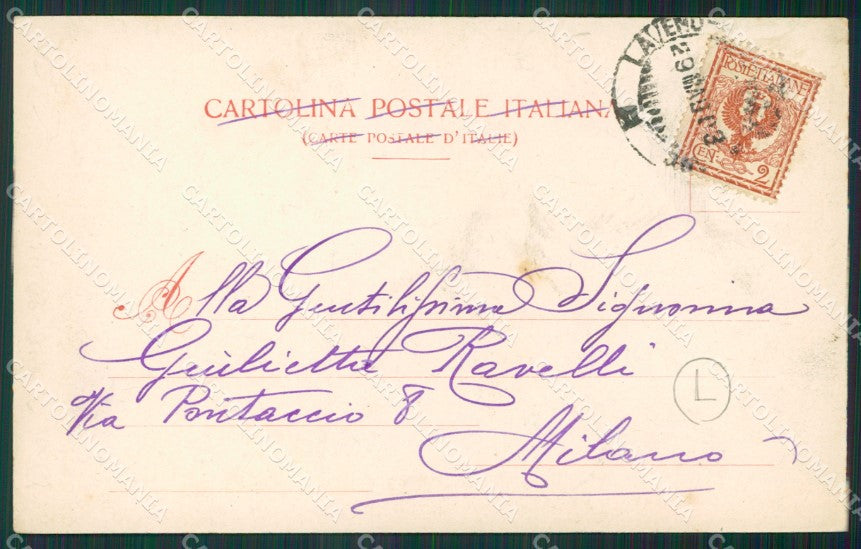 CARTOLINA POSTALE ITALIANA
(CARTE POSTALE D'ITALIE)
POSTE ITALIANE
CEN. 2
LAVENO
29 MAR 03
Alla Gentilissima Signorina
Giulietta Ravelli
Via Pontaccio 8
Milano
L
CARTOLINOMANIA